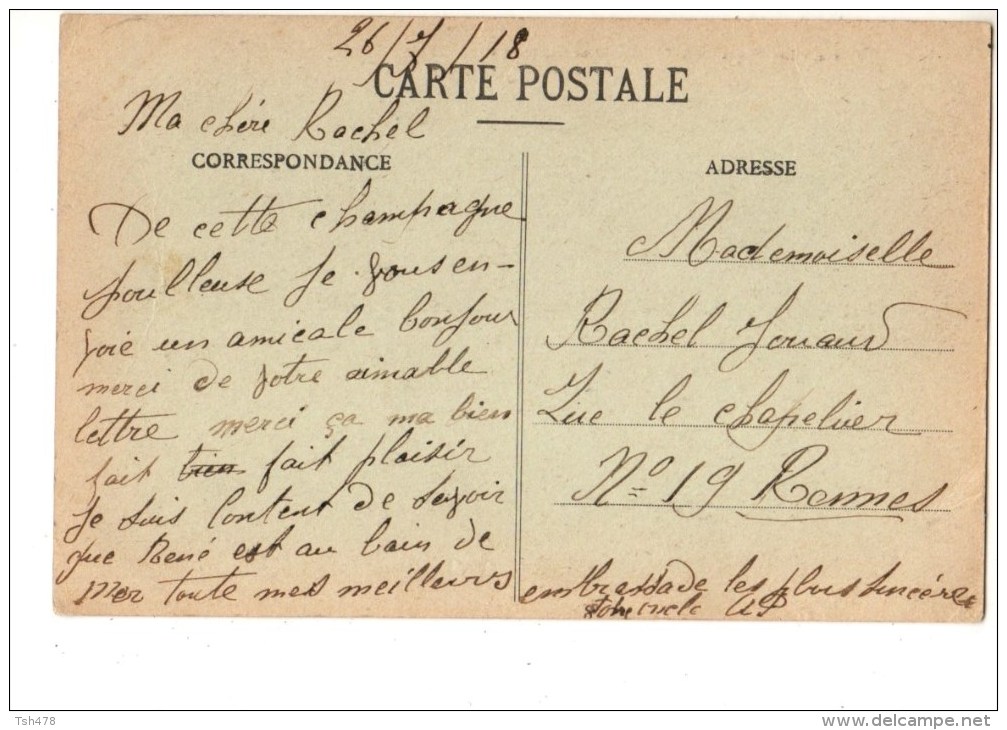 26/7/18
CARTE POSTALE
Ma chére Rachel
CORRESPONDANCE
De cette champagne
poulleuse je vous en-
voie un amicale bonjour
merci de votre aimable
lettre merci ça ma bien
fait bien fait plaisir
Je suis content de savoir
que René est au bain de
mer toute mes meilleurs embrassade les plus sincére
ADRESSE
Mademoiselle
Rachel Jouaud
le chapelier
No 19 Rennes
Tsh478
www.delcampe.net